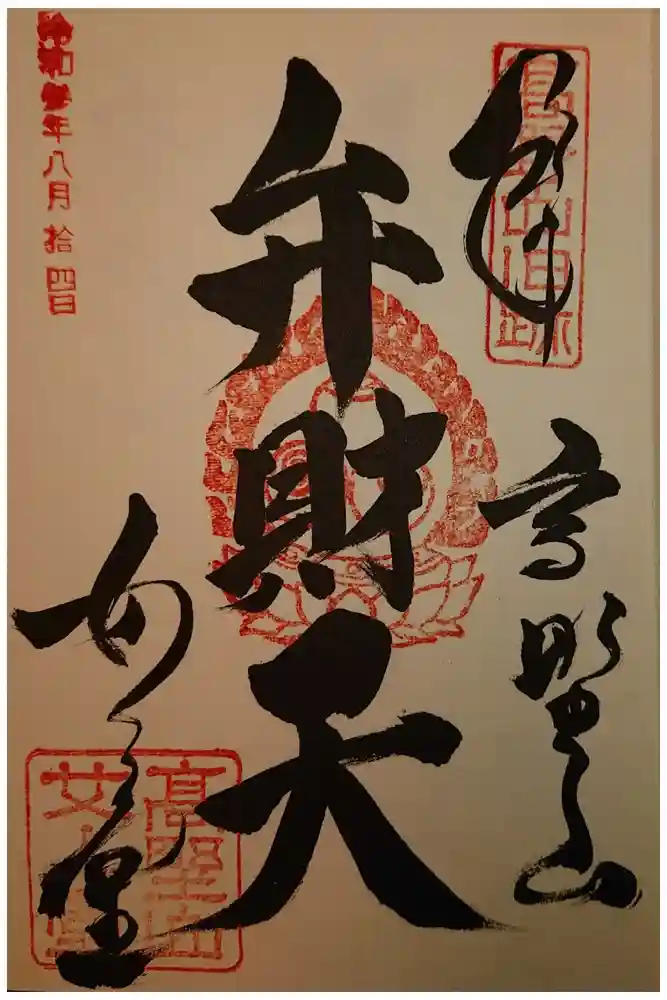 奉拝
高野山旧跡
高野山
弁財天
令和 年八月拾四日
女人堂
高野山
女人堂